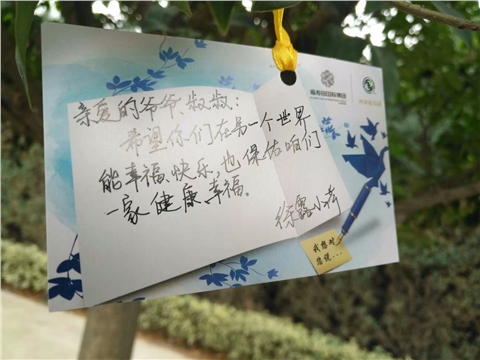 亲爱的爷爷、叔叔:
希望你们在另一个世界
能幸福、快乐,也保佑咱们
一家健康、幸福。
福寿园国际集团
我想对
您说...